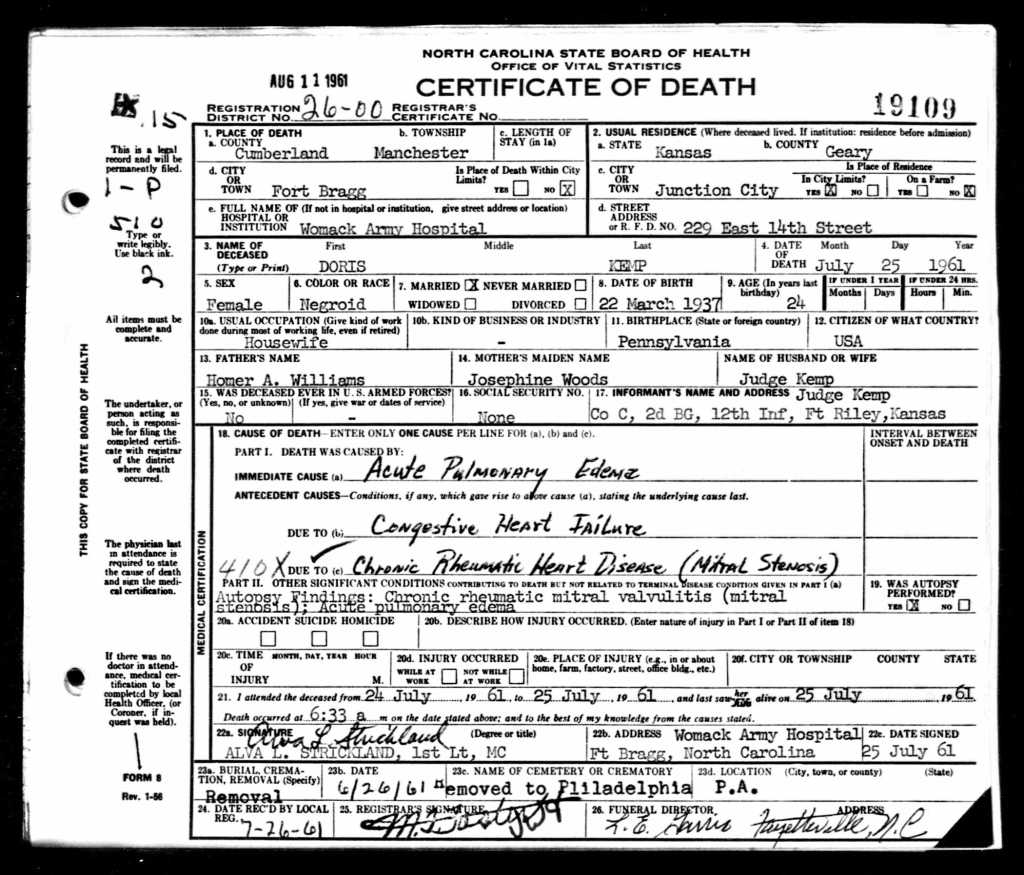 NORTH CAROLINA STATE BOARD OF HEALTH
OFFICE OF VITAL STATISTICS
CERTIFICATE OF DEATH
AUG 11 1961
19109
REGISTRATION DISTRICT No. 26-00 REGISTRAR'S CERTIFICATE No.
.15
This is a legal record and will be permanently filed.
1-P
510
Type or write legibly. Use black ink.
2
All items must be complete and accurate.
The undertaker, or person acting as such, is responsible for filing the completed certificate with registrar of the district where death occurred.
The physician last in attendance is required to state the cause of death and sign the medical certification.
If there was no doctor in attendance, medical certification to be completed by local Health Officer, (or Coroner, if inquest was held).
1
FORM 8
Rev. 1-56
THIS COPY FOR STATE BOARD OF HEALTH
1. PLACE OF DEATH
a. COUNTY Cumberland
b. TOWNSHIP Manchester
c. LENGTH OF STAY (in 1a)
2. USUAL RESIDENCE (Where deceased lived. If institution: residence before admission)
a. STATE Kansas
b. COUNTY Geary
d. CITY OR TOWN Fort Bragg
Is Place of Death Within City Limits? YES NO X
c. CITY OR TOWN Junction City
Is Place of Residence
In City Limits? YES X NO
On a Farm? YES NO X
e. FULL NAME OF (If not in hospital or institution, give street address or location)
HOSPITAL OR INSTITUTION Womack Army Hospital
d. STREET ADDRESS or R. F. D. NO. 229 East 14th Street
3. NAME OF DECEASED (Type or Print) First Middle Last
DORIS KEMP
4. DATE OF DEATH Month Day Year
July 25 1961
5. SEX Female
6. COLOR OR RACE Negroid
7. MARRIED X NEVER MARRIED
WIDOWED DIVORCED
8. DATE OF BIRTH 22 March 1937
9. AGE (In years last birthday) 24
IF UNDER 1 YEAR Months Days
IF UNDER 24 HRS. Hours Min.
10a. USUAL OCCUPATION (Give kind of work done during most of working life, even if retired) Housewife
10b. KIND OF BUSINESS OR INDUSTRY -
11. BIRTHPLACE (State or foreign country) Pennsylvania
12. CITIZEN OF WHAT COUNTRY? USA
13. FATHER'S NAME Homer A. Williams
14. MOTHER'S MAIDEN NAME Josephine Woods
NAME OF HUSBAND OR WIFE Judge Kemp
15. WAS DECEASED EVER IN U. S. ARMED FORCES? (Yes, no, or unknown) (If yes, give war or dates of service) No -
16. SOCIAL SECURITY NO. None
17. INFORMANT'S NAME AND ADDRESS Judge Kemp
Co C, 2d BG, 12th Inf, Ft Riley,Kansas
MEDICAL CERTIFICATION
18. CAUSE OF DEATH—ENTER ONLY ONE CAUSE PER LINE FOR (a), (b) and (c).
INTERVAL BETWEEN ONSET AND DEATH
PART I. DEATH WAS CAUSED BY:
IMMEDIATE CAUSE (a) Acute Pulmonary Edema
ANTECEDENT CAUSES—Conditions, if any, which gave rise to above cause (a), stating the underlying cause last.
DUE TO (b) Congestive Heart Failure
410X DUE TO (c) Chronic Rheumatic Heart Disease (Mitral Stenosis)
PART II. OTHER SIGNIFICANT CONDITIONS CONTRIBUTING TO DEATH BUT NOT RELATED TO TERMINAL DISEASE CONDITION GIVEN IN PART I (a)
Autopsy Findings: Chronic rheumatic mitral valvulitis (mitral
stenosis); Acute pulmonary edema
19. WAS AUTOPSY PERFORMED? YES X NO
20a. ACCIDENT SUICIDE HOMICIDE
20b. DESCRIBE HOW INJURY OCCURRED. (Enter nature of injury in Part I or Part II of item 18)
20c. TIME OF INJURY MONTH, DAY, YEAR HOUR M.
20d. INJURY OCCURRED WHILE AT WORK NOT WHILE AT WORK
20e. PLACE OF INJURY (e.g., in or about home, farm, factory, street, office bldg., etc.)
20f. CITY OR TOWNSHIP COUNTY STATE
21. I attended the deceased from 24 July, 19 61, to 25 July, 19 61 and last saw her alive on 25 July 19 61
Death occurred at 6:33 a m on the date stated above; and to the best of my knowledge from the causes stated.
22a. SIGNATURE (Degree or title)
Alva L Strickland
ALVA L. STRICKLAND, 1st Lt, MC
22b. ADDRESS Womack Army Hospital
Ft Bragg, North Carolina
22c. DATE SIGNED 25 July 61
23a. BURIAL, CREMATION, REMOVAL (Specify) Removal
23b. DATE 6/26/61
23c. NAME OF CEMETERY OR CREMATORY
Removed to Pliladelphia P.A.
23d. LOCATION (City, town, or county) (State)
24. DATE REC'D BY LOCAL REG. 7-26-61
25. REGISTRAR'S SIGNATURE
26. FUNERAL DIRECTOR ADDRESS
Fayetteville, N.C